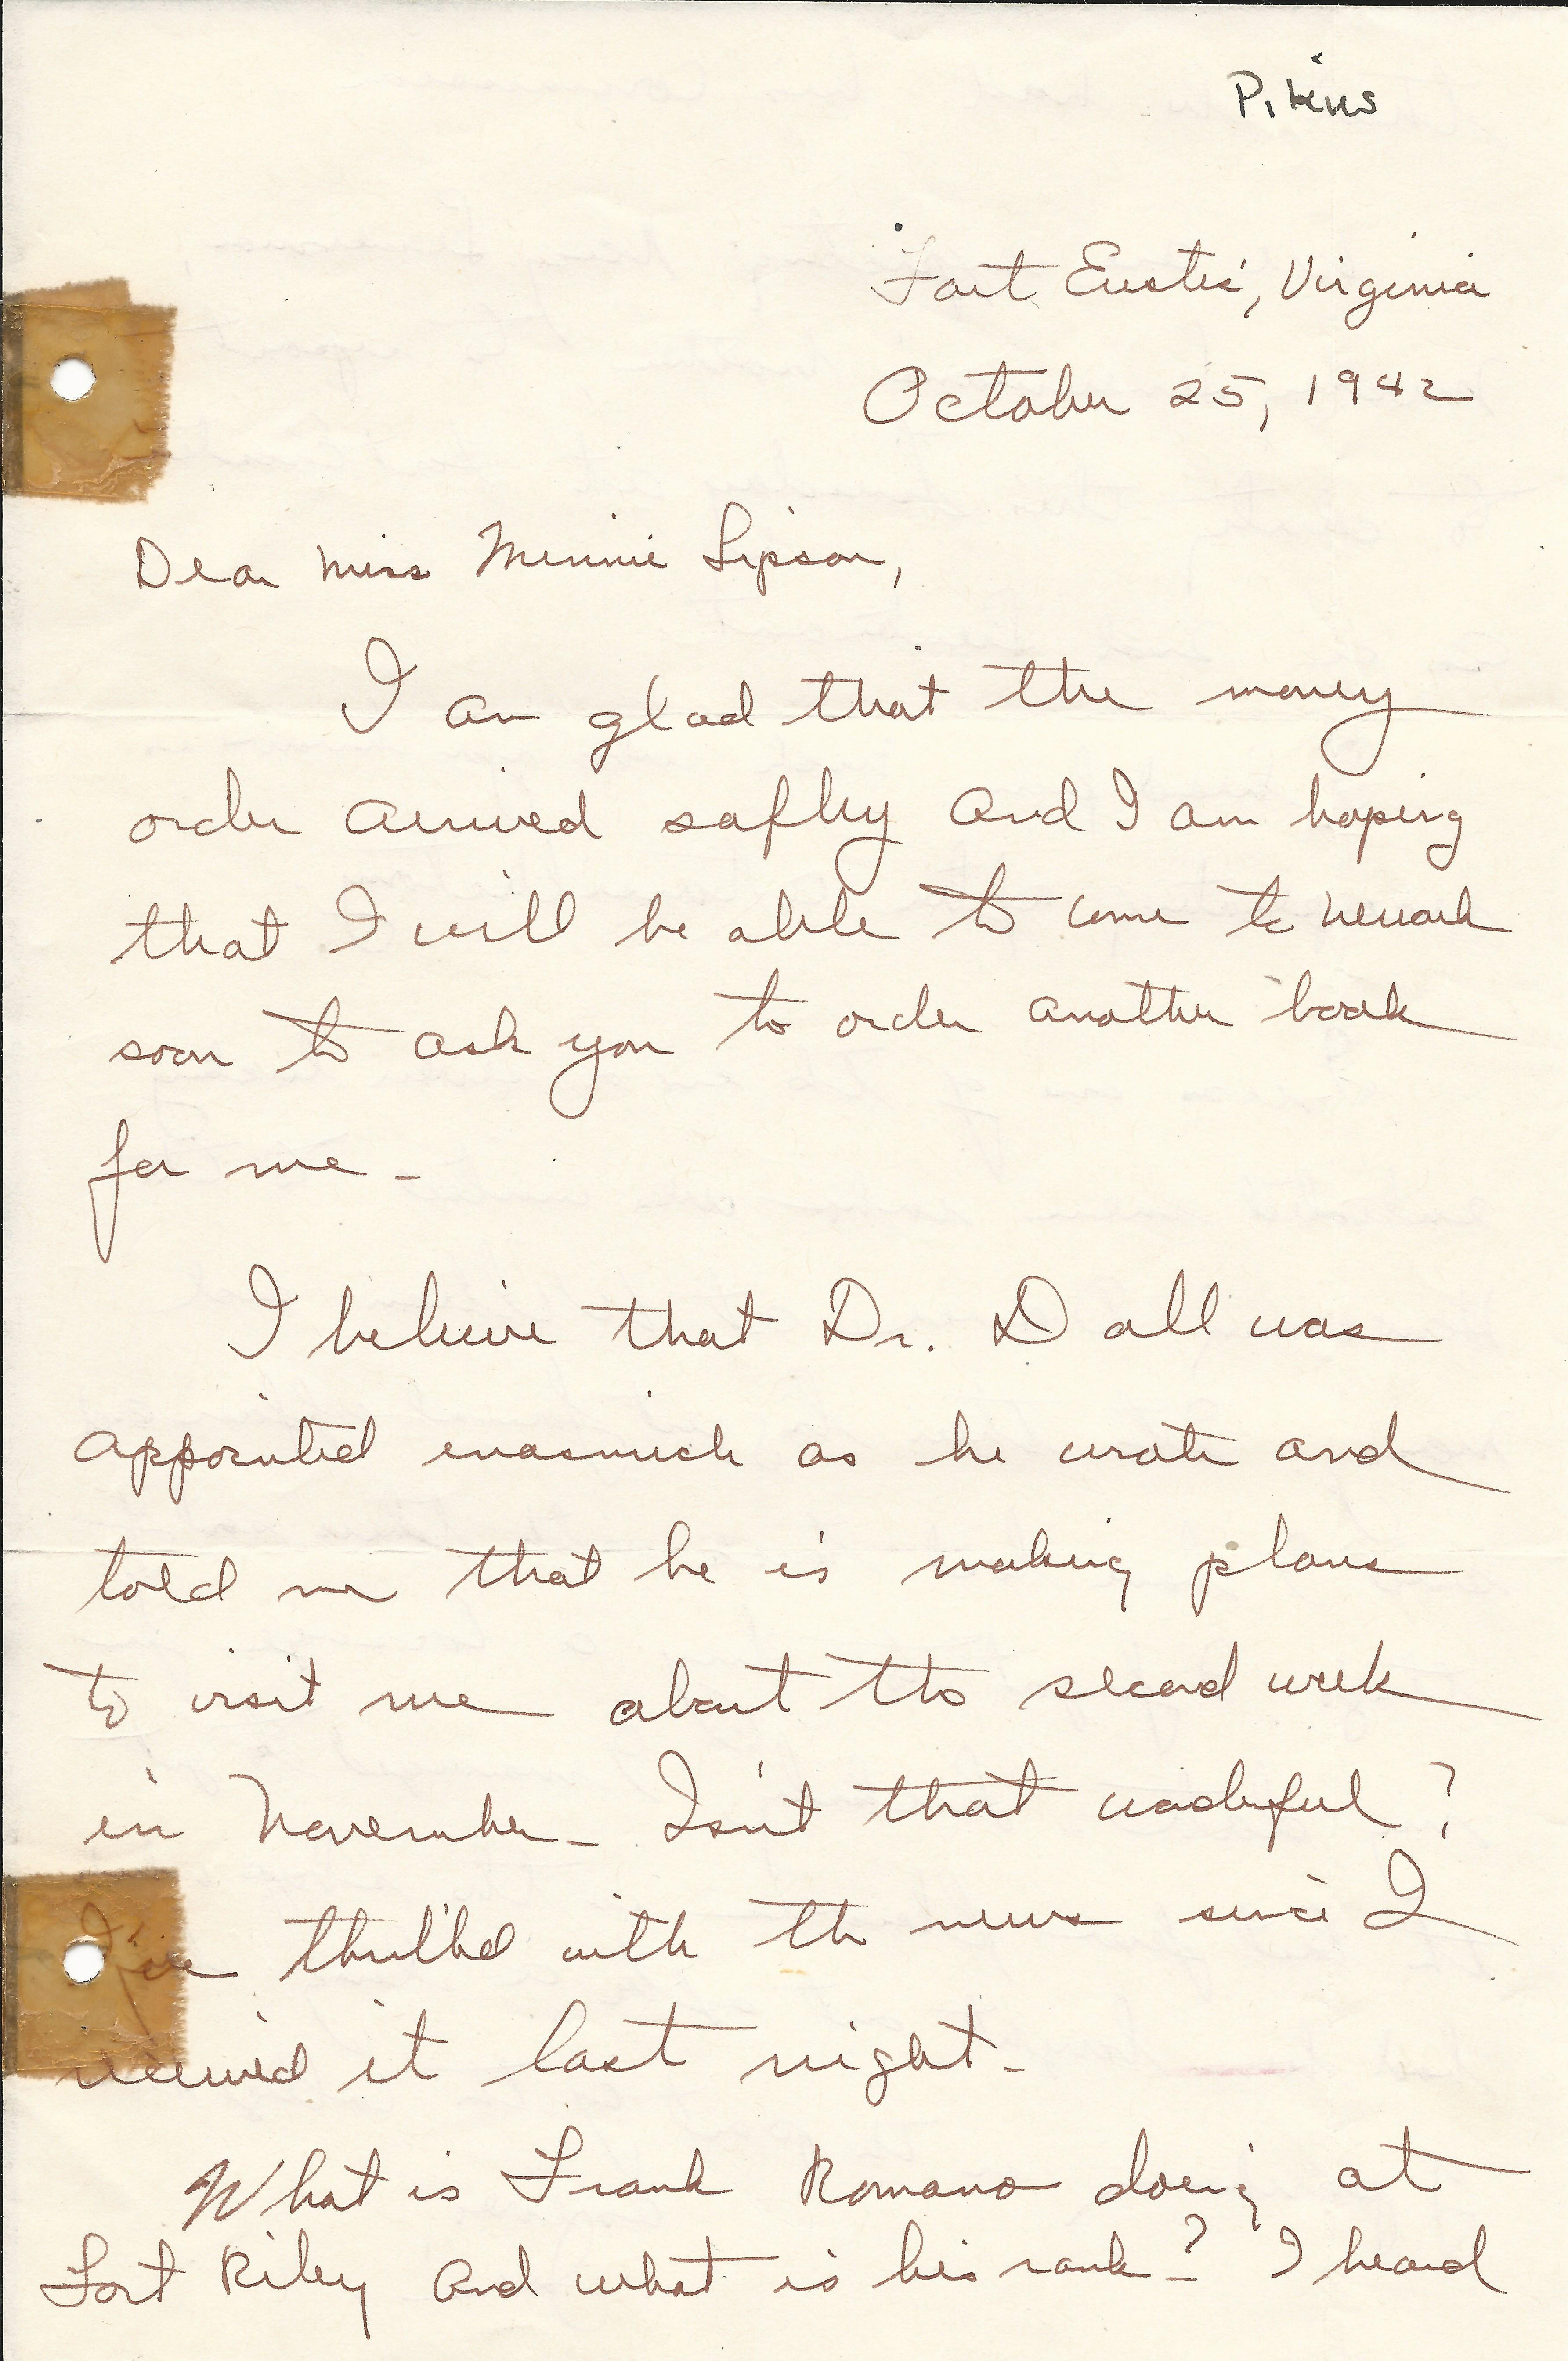 Pitkins
Fort Eustis, Virginia
October 25, 1942
Dear Miss Minnie Lipson,
I am glad that the money
order arrived saftly and I am hoping
that I will be able to come to Newark
soon to ask you to order another book
for me -
I believe that Dr. Dall was
appointed inasmuch as he wrote and
told me that he is making plans
to visit me about the second week
in November - Isn't that wonderful?
I've thrilled with the news since I
received it last night -
What is Frank Romano doing at
Fort Riley and what is his rank? I heard